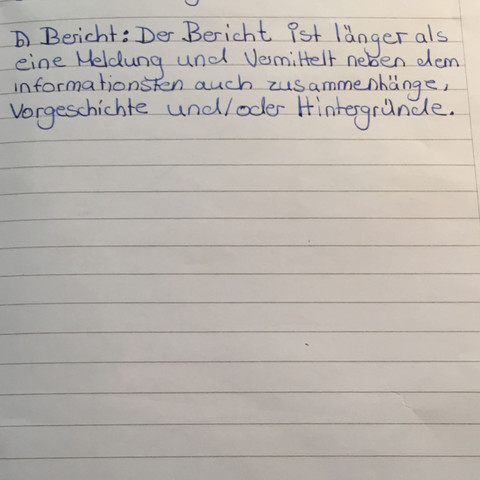 b) Bericht: Der Bericht ist länger als
eine Meldung und Vermittelt neben dem
informationsten auch zusammenhänge,
Vorgeschichte und/oder Hintergründe.